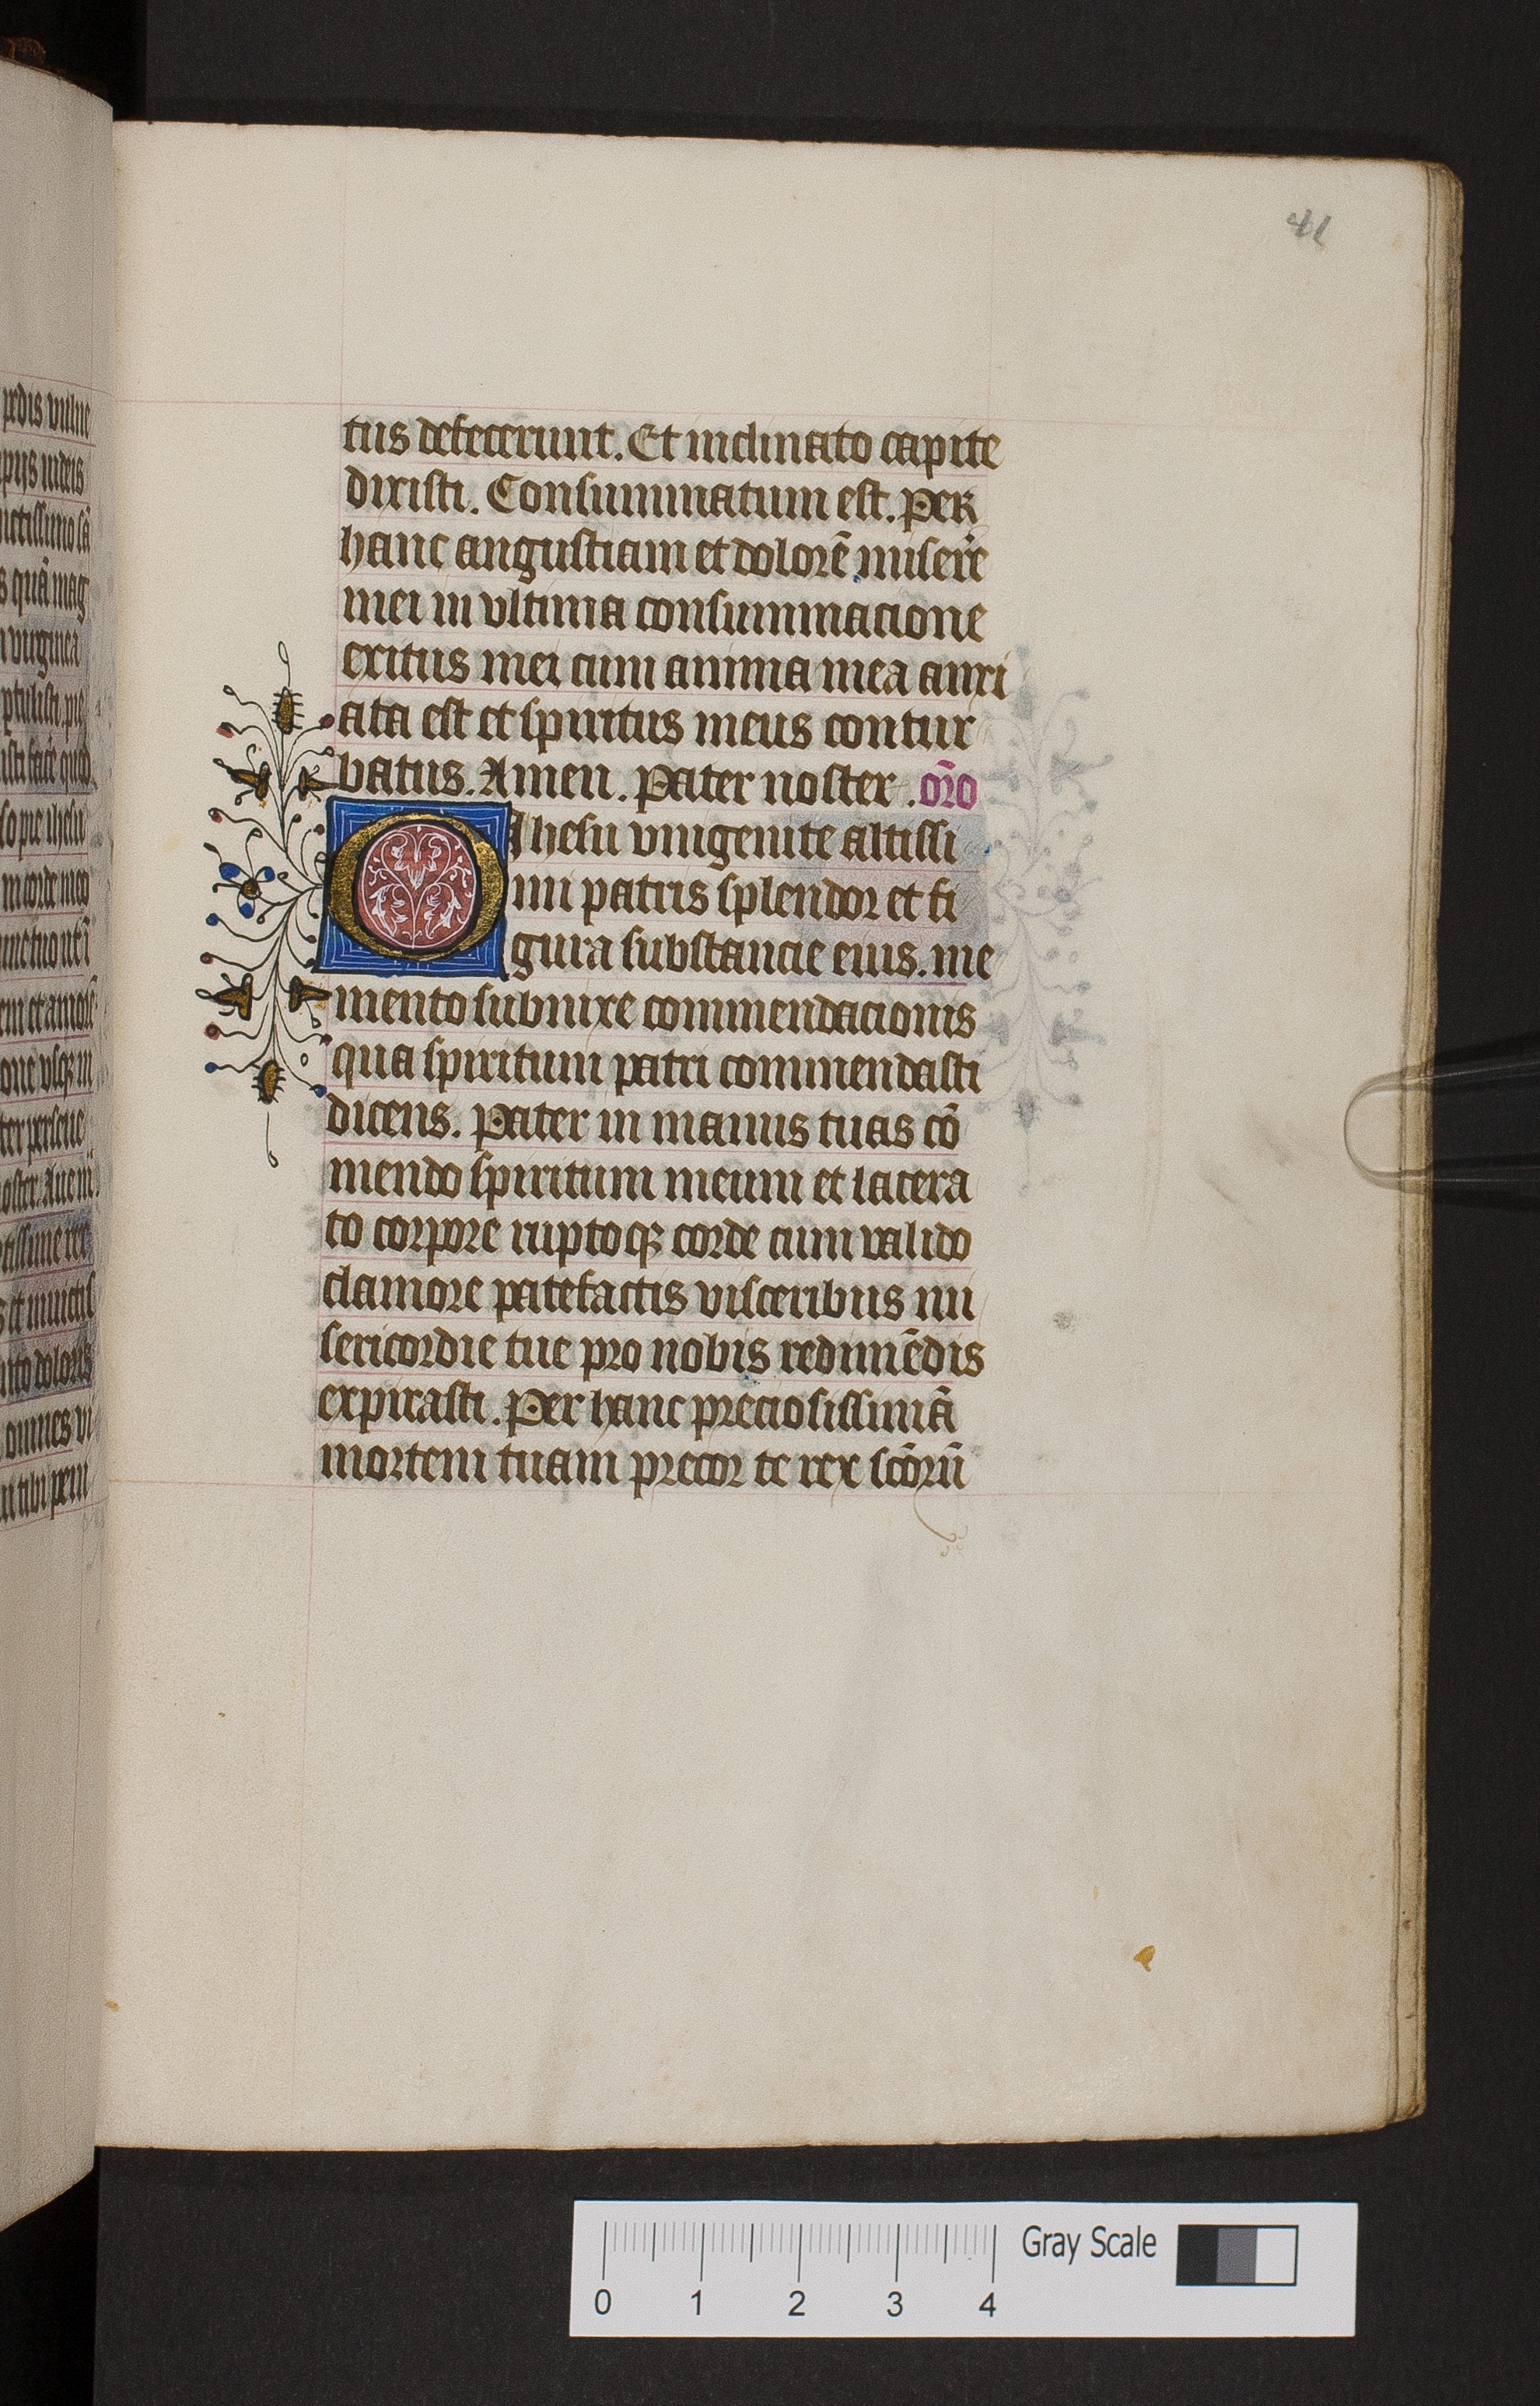 41
tus defecerunt. Et inclinato capite
dixisti. Consummatum est. Per
hanc angustiam et dolorē miserē
mei in vltima consummacione
exitus mei cum anima mea anxi
ata est et spiritus meus contur
batus. Amen. Pater noster. or̄o
O Ihesu vnigenite altissi
mi patris splendor et fi
gura substancie eius. me
mento subnixe commendacionis
qua spiritum patri commendasti
dicens. Pater in manus tuas cō
mendo spiritum meum et lacera
to corpore ruptoqꝫ corde cum valido
clamore patefactis visceribus mi
sericordie tue pro nobis redimēdis
expirasti. Per hanc preciosissimā
mortem tuam precor te rex sc̄orū
Gray Scale
0 1 2 3 4